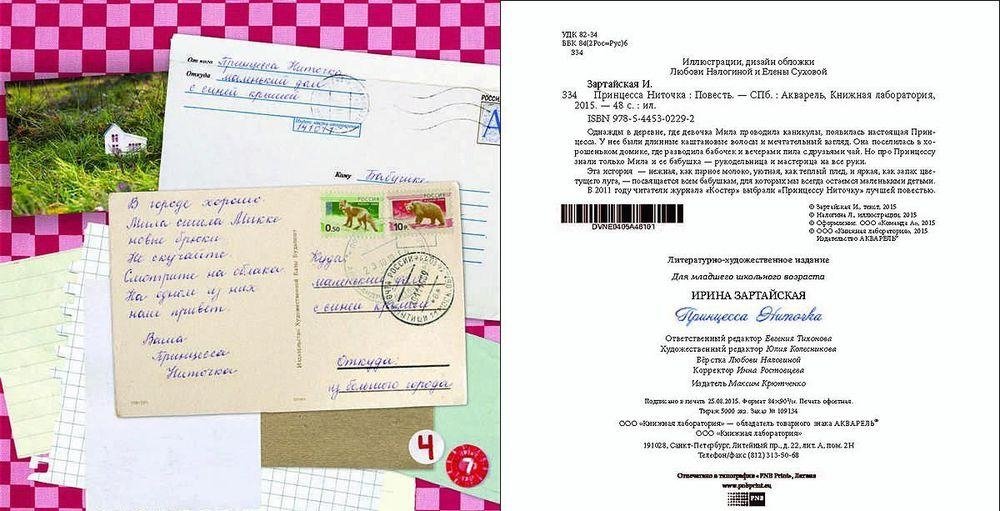 От кого Принцесса Ниточка
Откуда маленький дом
с синей крышей
141077
РОССИ
А
Кому Бабушке
В городе хорошо.
Мила сшила Микке
новые брюки.
Не скучайте.
Смотрите на облака.
На одном из них
наш привет.
Ваша
Принцесса
Ниточка
РОССИЯ
0,50
РОССИЯ
10р.
Куда:
маленький дом
с синей крышей
Откуда:
из большого города
4
7
УДК 82-34
ББК 84(2Рос=Рус)6
З34
Иллюстрации, дизайн обложки
Любови Налогиной и Елены Суховой
Зартайская И.
З34 Принцесса Ниточка : Повесть. — СПб. : Акварель, Книжная лаборатория,
2015. — 48 с. : ил.
ISBN 978-5-4453-0229-2
Однажды в деревне, где девочка Мила проводила каникулы, появилась настоящая Прин-
цесса. У нее были длинные каштановые волосы и мечтательный взгляд. Она поселилась в хо-
рошеньком домике, где разводила бабочек и вечерами пила с друзьями чай. Но про Принцессу
знали только Мила и ее бабушка — рукодельница и мастерица на все руки.
Эта история — нежная, как парное молоко, уютная, как теплый плед, и яркая, как запах цве-
тущего луга, — посвящается всем бабушкам, для которых мы всегда остаемся маленькими детьми.
В 2011 году читатели журнала «Костер» выбрали «Принцессу Ниточку» лучшей повестью.
DVNE0405A48101
© Зартайская И., текст, 2015
© Налогина Л., иллюстрации, 2015
© Оформление. ООО «Команда А», 2015
© ООО «Книжная лаборатория», 2015
Издательство АКВАРЕЛЬ®
Литературно-художественное издание
Для младшего школьного возраста
ИРИНА ЗАРТАЙСКАЯ
Принцесса Ниточка
Ответственный редактор Евгения Тихонова
Художественный редактор Юлия Колесникова
Вёрстка Любови Налогиной
Корректор Инна Ростовцева
Издатель Максим Крютченко
Подписано в печать 25.08.2015. Формат 84×90¹/₁₆. Печать офсетная.
Тираж 5000 экз. Заказ № 109134
ООО «Книжная лаборатория» — обладатель товарного знака АКВАРЕЛЬ®
ООО «Книжная лаборатория»
191028, Санкт-Петербург, Литейный пр., д. 22, лит. А, пом. 2Н
Телефон/факс (812) 313-50-68
Отпечатано в типографии «PNB Print», Латвия
www.pnbprint.eu
PNB